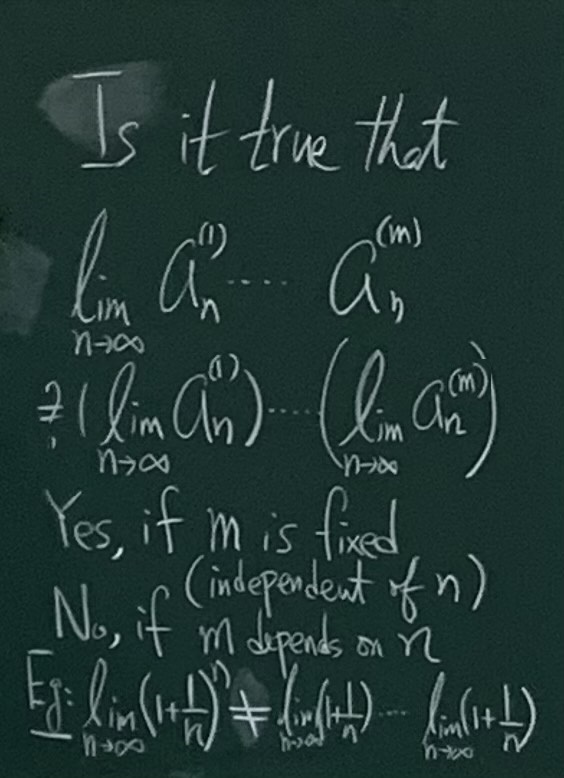 Is it true that
lim_{n→∞} a_n^{(1)} ..... a_n^{(m)}
≟ (lim_{n→∞} a_n^{(1)}) ..... (lim_{n→∞} a_n^{(m)})
Yes, if m is fixed
(independent of n)
No, if m depends on n
Eg: lim_{n→∞} (1+1/n)^n ≠ lim_{n→∞} (1+1/n) .... lim_{n→∞} (1+1/n)